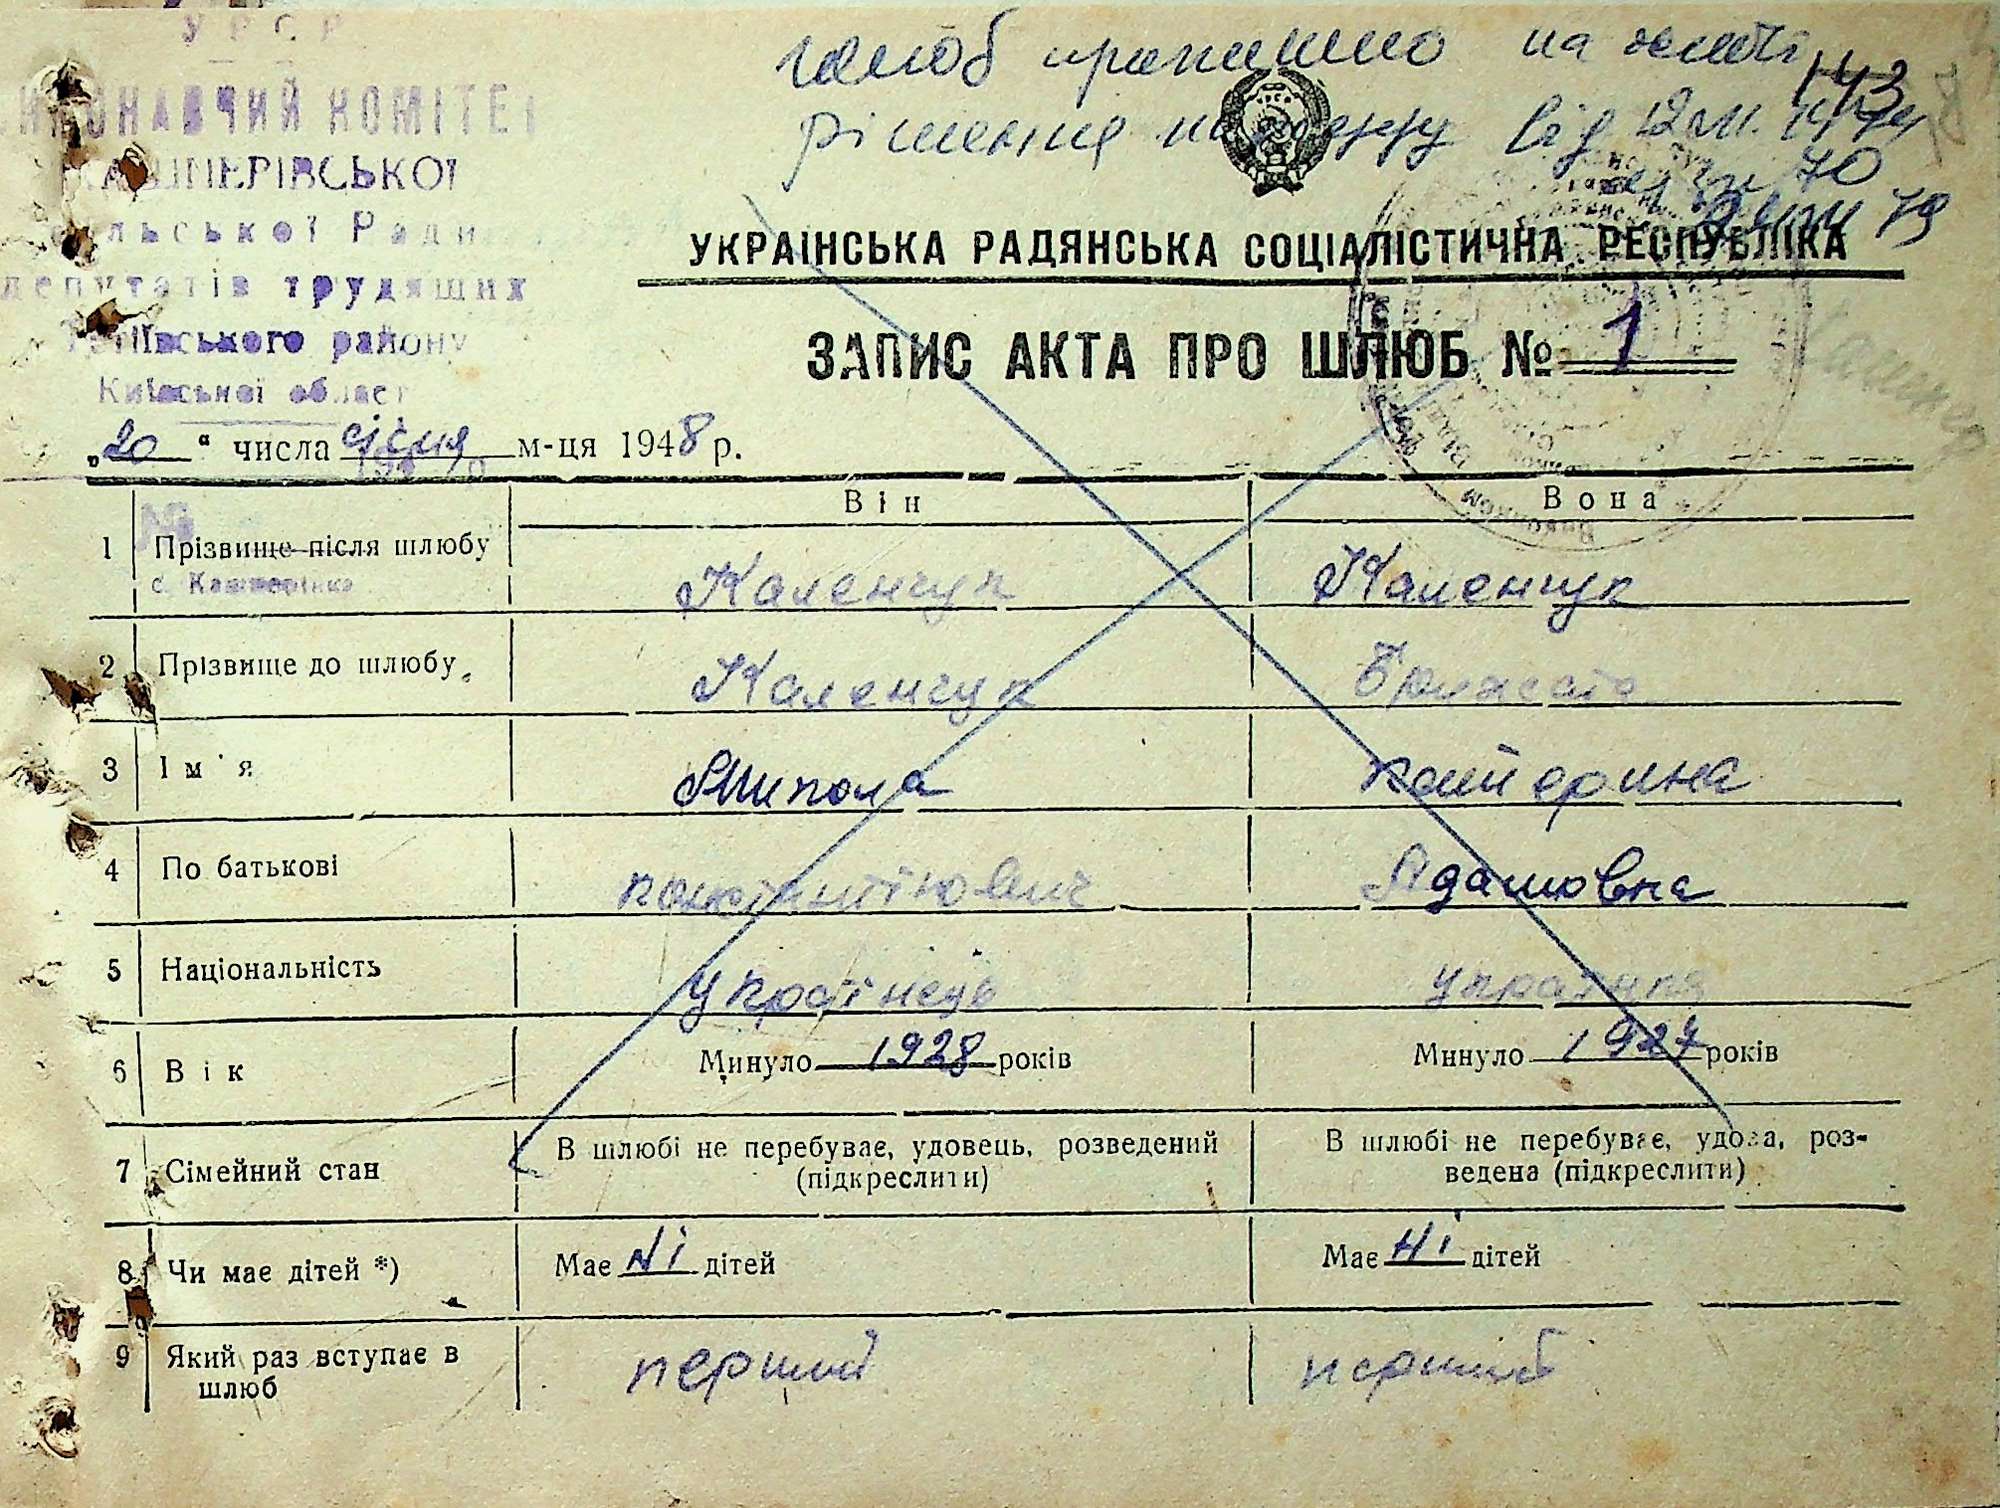 УРСР
ВИКОНАВЧИЙ КОМІТЕТ
КАШПЕРІВСЬКОЇ
сільської Ради
депутатів трудящих
Тетіївського району
Київської област
с. Кашперівка
шлюб припинено на
рішення від
70
143
УКРАЇНСЬКА РАДЯНСЬКА СОЦІАЛІСТИЧНА РЕСПУБЛІКА
ЗАПИС АКТА ПРО ШЛЮБ № 1
„20“ числа січня м-ця 1948 р.
Він Вона
1 Прізвище після шлюбу Каленчук Каленчук
2 Прізвище до шлюбу Каленчук
3 Ім'я Микола Катерина
4 По батькові Адамовна
5 Національність українець українка
6 Вік Минуло 1928 років Минуло 1927 років
7 Сімейний стан В шлюбі не перебуває, удовець, розведений (підкреслити) В шлюбі не перебуває, удова, роз-
ведена (підкреслити)
8 Чи має дітей *) Має Ні дітей Має Ні дітей
9 Який раз вступає в перший перший
шлюб